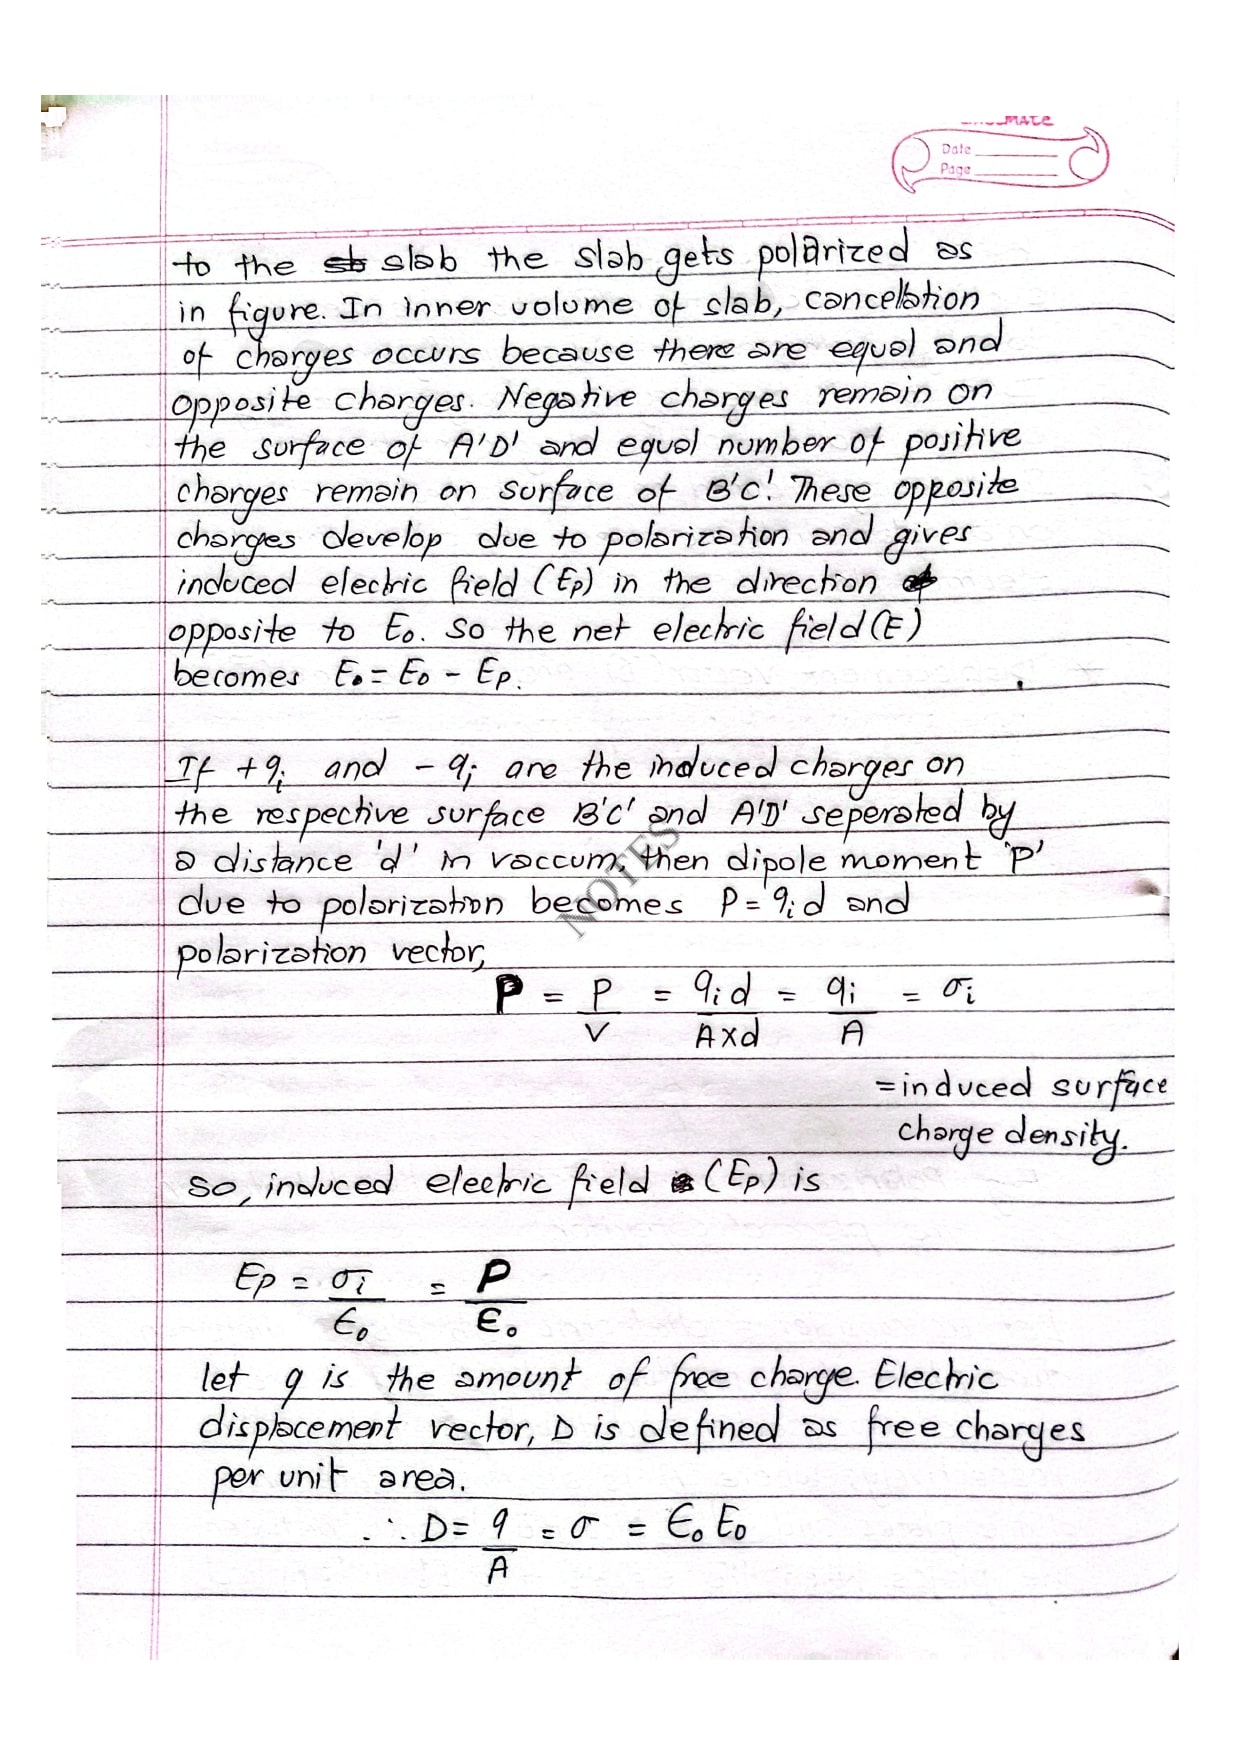 MATE
Date
Page
to the slab the slab gets polarized as
in figure. In inner volume of slab, cancellation
of charges occurs because there are equal and
opposite charges. Negative charges remain on
the surface of A'D' and equal number of positive
charges remain on surface of B'C'. These opposite
charges develop due to polarization and gives
induced electric field (Ep) in the direction
opposite to E₀. So the net electric field (E)
becomes E = E₀ - Ep.
If +qi and -qi are the induced charges on
the respective surface B'C' and A'D' seperated by
a distance 'd' in vaccum, then dipole moment 'P'
due to polarization becomes P = qi d and
polarization vector,
P = P/V = qi d/A×d = qi/A = σi
= induced surface
charge density.
So, induced electric field (Ep) is
Ep = σi/ϵ₀ = P/ϵ₀
let q is the amount of free charge. Electric
displacement vector, D is defined as free charges
per unit area.
∴ D = q/A = σ = ϵ₀ E₀
NOTES